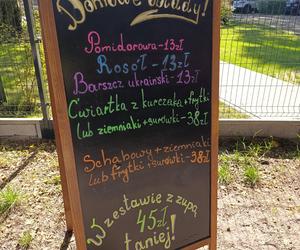 Domowe obiady!
Pomidorowa - 13zł
Rosół - 13zł
Barszcz ukraiński - 13zł
Ćwiartka z kurczaka + frytki
lub ziemniaki + surówki - 38zł
Schabowy + ziemniaki
lub frytki + surówki - 38zł
W zestawie z zupą
45zł
taniej!